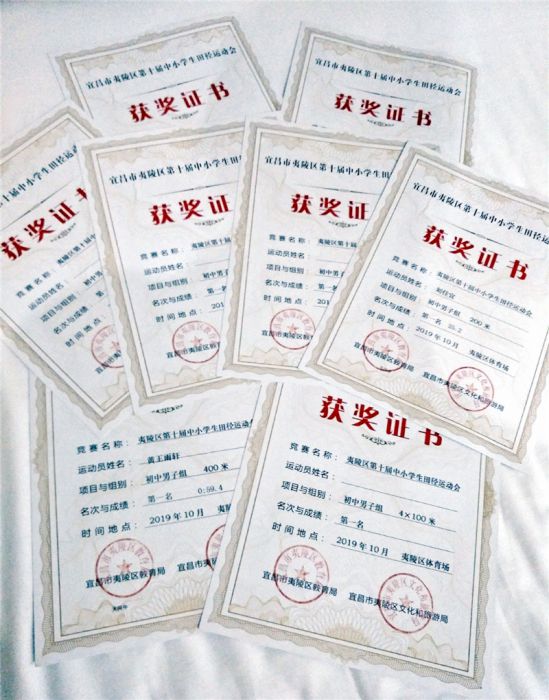 宜昌市夷陵区第十届中小学生田径运动会
获奖证书
宜昌市夷陵区第十届中小学生田径运动会
获奖证书
宜昌市夷陵区第十届中
获奖证书
竞赛名称： 夷陵区第十届中
运动员姓名
项目与组别： 初中男子
名次与成绩： 第
时间地点： 2
宜昌市夷陵
宜昌市夷陵区第十届中小学生田
获奖证
竞赛名称： 夷陵区第十届
运动员姓名
项目与组别： 初中男子
名次与成绩： 第一名
时间地点： 201
宜昌市夷陵区教
宜昌市夷陵区第十届中小学生田
获奖证
竞赛名称： 夷陵区第十
运动员姓名
项目与组别： 初中男
名次与成绩： 第一名
时间地点： 201
宜昌市夷陵区教
宜昌市夷陵区第十届中小学生田径运动
获奖证书
竞赛名称： 夷陵区第十届中小学生田径运动会
运动员姓名：
项目与组别： 初中男子组 200米
名次与成绩： 第一名
时间地点： 2019年10月 夷陵区体育场
宜昌市夷陵区教育局 宜昌市夷陵区文化和旅游局
竞赛名称： 夷陵区第十届中小学生田径运动
运动员姓名： 黄王雨轩
项目与组别： 初中男子组 400米
名次与成绩： 第一名 0:59.4
时间地点： 2019年10月 夷陵
宜昌市夷陵区教育局
获奖证书
竞赛名称： 夷陵区第十届中小学生田径运动会
运动员姓名：
项目与组别： 初中男子组 4×100米
名次与成绩： 第一名
时间地点： 2019年10月 夷陵区体育场
宜昌市夷陵区教育局 宜昌市夷陵区文化和旅游局